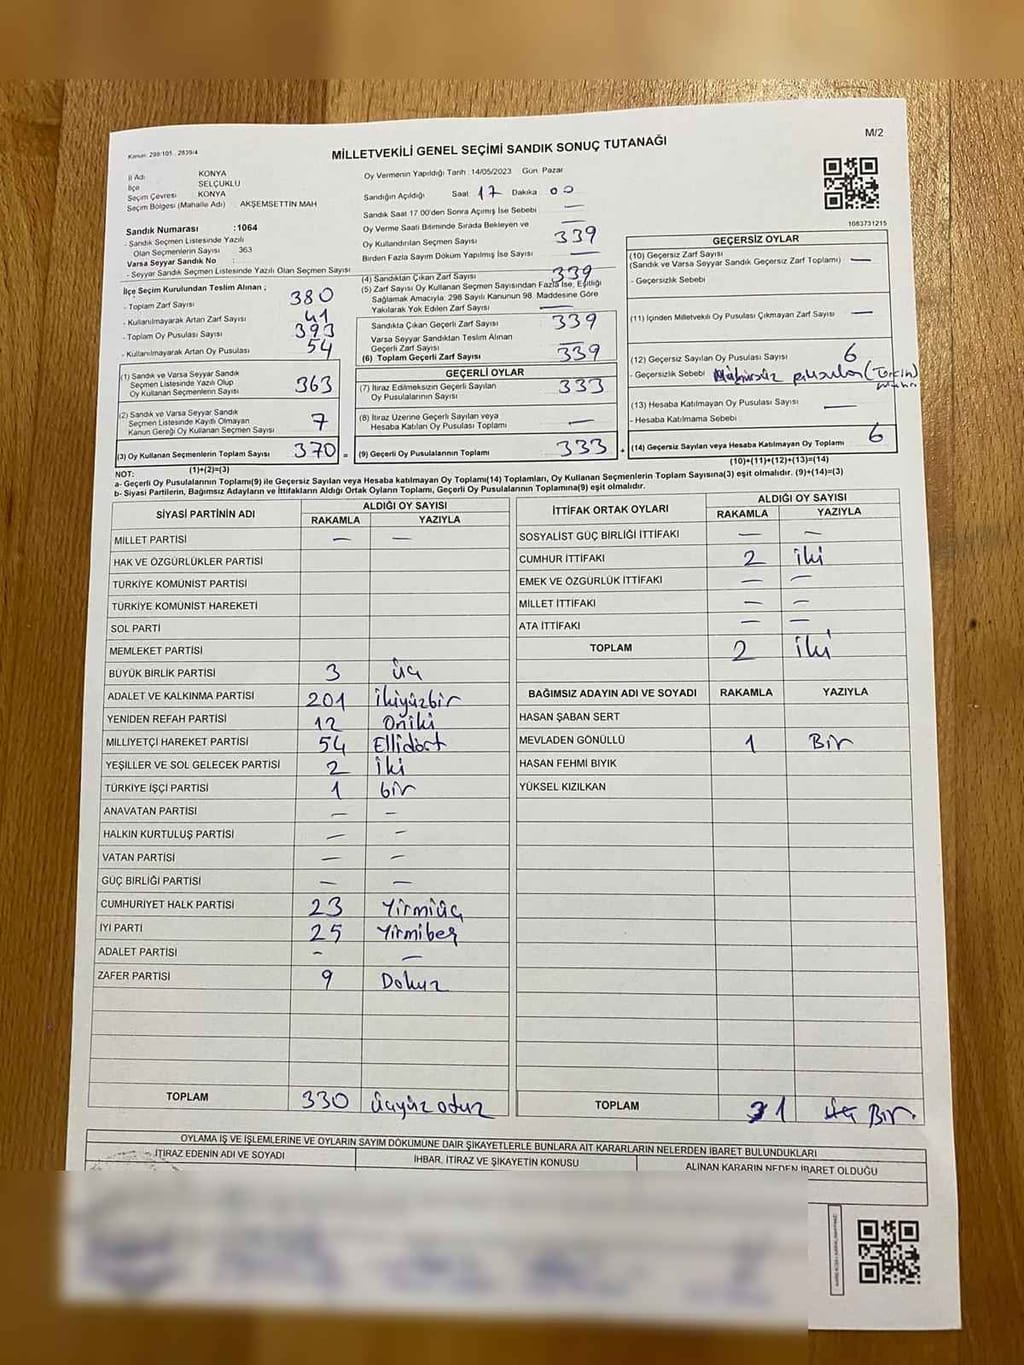 Kanun: 298/101 - 2839/4
M/2
MİLLETVEKİLİ GENEL SEÇİMİ SANDIK SONUÇ TUTANAĞI
İl Adı KONYA
İlçe SELÇUKLU
Seçim Çevresi KONYA
Seçim Bölgesi (Mahalle Adı) AKŞEMSETTİN MAH
Sandık Numarası :1064
- Sandık Seçmen Listesinde Yazılı
Olan Seçmenlerin Sayısı : 363
Varsa Seyyar Sandık No :
- Seyyar Sandık Seçmen Listesinde Yazılı Olan Seçmen Sayısı
İlçe Seçim Kurulundan Teslim Alınan ;
- Toplam Zarf Sayısı 380
- Kullanılmayarak Artan Zarf Sayısı 41
- Toplam Oy Pusulası Sayısı 393
- Kullanılmayarak Artan Oy Pusulası 54
(1) Sandık ve Varsa Seyyar Sandık
Seçmen Listesinde Yazılı Olup
Oy Kullanan Seçmenlerin Sayısı 363
(2) Sandık ve Varsa Seyyar Sandık
Seçmen Listesinde Kayıtlı Olmayan
Kanun Gereği Oy Kullanan Seçmen Sayısı 7
(3) Oy Kullanan Seçmenlerin Toplam Sayısı 370 =
(1)+(2)=(3)
Oy Vermenin Yapıldığı Tarih :14/05/2023 Gün: Pazar
Sandığın Açıldığı Saat 17 Dakika 00
Sandık Saat 17 00'den Sonra Açımış İse Sebebi —
Oy Verme Saati Bitiminde Sırada Bekleyen ve —
Oy Kullandırılan Seçmen Sayısı 339
Birden Fazla Sayım Döküm Yapılmış İse Sayısı —
(4) Sandıktan Çıkan Zarf Sayısı 339
(5) Zarf Sayısı Oy Kullanan Seçmen Sayısından Fazla İse, Eşitliği
Sağlamak Amacıyla; 298 Sayılı Kanunun 98. Maddesine Göre
Yakılarak Yok Edilen Zarf Sayısı —
Sandıkta Çıkan Geçerli Zarf Sayısı 339
Varsa Seyyar Sandıktan Teslim Alınan
Geçerli Zarf Sayısı —
(6) Toplam Geçerli Zarf Sayısı 339
GEÇERLİ OYLAR
(7) İtiraz Edilmeksizin Geçerli Sayılan
Oy Pusulalarının Sayısı 333
(8) İtiraz Üzerine Geçerli Sayılan veya
Hesaba Katılan Oy Pusulası Toplamı —
(9) Geçerli Oy Pusulalarının Toplamı 333 +
1083731215
GEÇERSİZ OYLAR
(10) Geçersiz Zarf Sayısı
(Sandık ve Varsa Seyyar Sandık Geçersiz Zarf Toplamı) —
- Geçersizlik Sebebi
(11) İçinden Milletvekili Oy Pusulası Çıkmayan Zarf Sayısı —
(12) Geçersiz Sayılan Oy Pusulası Sayısı 6
- Geçersizlik Sebebi Mühürsüz pusula
(13) Hesaba Katılmayan Oy Pusulası Sayısı —
- Hesaba Katılmama Sebebi
(14) Geçersiz Sayılan veya Hesaba Katılmayan Oy Toplamı 6
(10)+(11)+(12)+(13)=(14)
NOT:
a- Geçerli Oy Pusulalarının Toplamı(9) ile Geçersiz Sayılan veya Hesaba katılmayan Oy Toplamı(14) Toplamları, Oy Kullanan Seçmenlerin Toplam Sayısına(3) eşit olmalıdır. (9)+(14)=(3)
b- Siyasi Partilerin, Bağımsız Adayların ve İttifakların Aldığı Ortak Oyların Toplamı, Geçerli Oy Pusulalarının Toplamına(9) eşit olmalıdır.
SİYASİ PARTİNİN ADI ALDIĞI OY SAYISI
RAKAMLA YAZIYLA
MİLLET PARTİSİ — —
HAK VE ÖZGÜRLÜKLER PARTİSİ
TÜRKİYE KOMÜNİST PARTİSİ
TÜRKİYE KOMÜNİST HAREKETİ
SOL PARTİ
MEMLEKET PARTİSİ
BÜYÜK BİRLİK PARTİSİ 3 üç
ADALET VE KALKINMA PARTİSİ 201 ikiyüzbir
YENİDEN REFAH PARTİSİ 12 Oniki
MİLLİYETÇİ HAREKET PARTİSİ 54 Ellidört
YEŞİLLER VE SOL GELECEK PARTİSİ 2 iki
TÜRKİYE İŞÇİ PARTİSİ 1 bir
ANAVATAN PARTİSİ — —
HALKIN KURTULUŞ PARTİSİ — —
VATAN PARTİSİ — —
GÜÇ BİRLİĞİ PARTİSİ — —
CUMHURİYET HALK PARTİSİ 23 Yirmiüç
İYİ PARTİ 25 Yirmibeş
ADALET PARTİSİ - —
ZAFER PARTİSİ 9 Dokuz
TOPLAM 330 üçyüz otuz
İTTİFAK ORTAK OYLARI ALDIĞI OY SAYISI
RAKAMLA YAZIYLA
SOSYALİST GÜÇ BİRLİĞİ İTTİFAKI — —
CUMHUR İTTİFAKI 2 iki
EMEK VE ÖZGÜRLÜK İTTİFAKI — —
MİLLET İTTİFAKI — —
ATA İTTİFAKI — —
TOPLAM 2 iki
BAĞIMSIZ ADAYIN ADI VE SOYADI RAKAMLA YAZIYLA
HASAN ŞABAN SERT
MEVLADEN GÖNÜLLÜ 1 Bir
HASAN FEHMİ BIYIK
YÜKSEL KIZILKAN
TOPLAM 1 Bir
OYLAMA İŞ VE İŞLEMLERİNE VE OYLARIN SAYIM DÖKÜMÜNE DAİR ŞİKAYETLERLE BUNLARA AİT KARARLARIN NELERDEN İBARET BULUNDUKLARI
İTİRAZ EDENİN ADI VE SOYADI İHBAR, İTİRAZ VE ŞİKAYETİN KONUSU ALINAN KARARIN NEDEN İBARET OLDUĞU